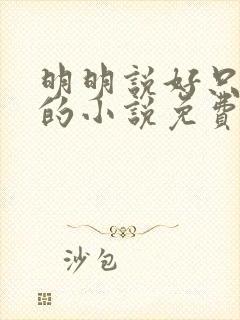 明明說好只
的小說免費
沙包